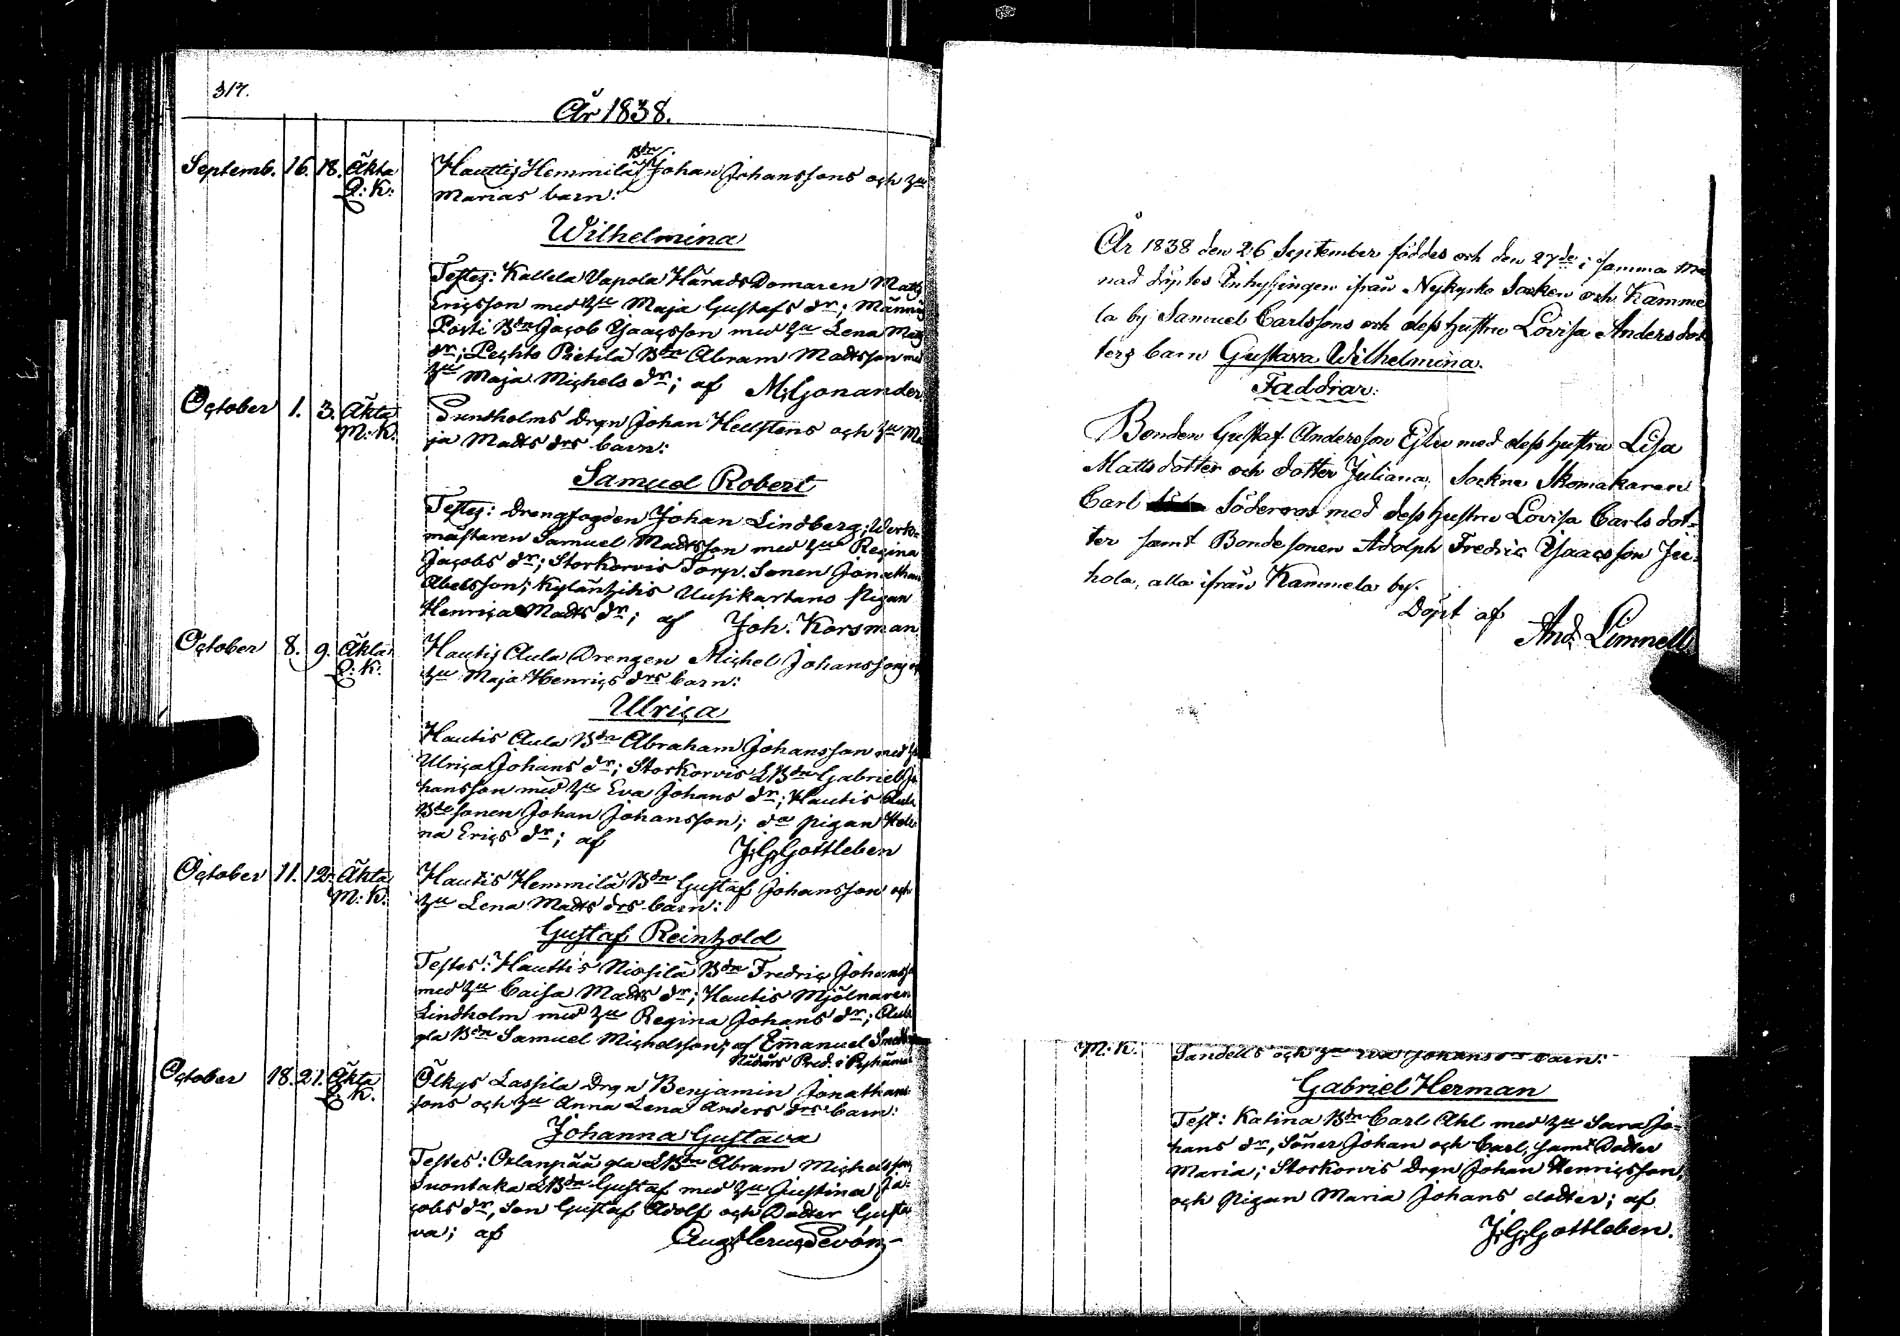 317.
År 1838.
Septemb. 16. 18. Äkta Q: K:
Hauttis Hemmilä Bdn Johan Johanssons och Hu
Marias barn:
Wilhelmina
Testes: Kallela Vapola HäradsDomaren Matts
Ericsson med Hu Maja Gustafs dr; Männis
Posti Bdn Jacob Isaacsson med Hu Lena Matts
dr; Pietilä Bdn Abram Madtsson med
Hu Maja Michels dr; af M. Gonander
October 1. 3. Äkta M: K:
Sundholms drgn Johan Hellstens och Hu Ma
ja Madts drs barn:
Samuel Robert
Testes: drengfogden Johan Lindberg; Werk-
mästaren Samuel Madtsson med Hu Regina
Jacobs dr; Storkorvis Torp. Sonen Jonathan
Abelsson; Kylänpitis Uusikartano Pigan
Henrica Madts dr; af Joh. Korsman
October 8. 9. Äkta Q: K:
Hautis Aula Drengen Michel Johanssons och
Hu Maja Henrics drs barn:
Ulrica
Hautis Aula Bdn Abraham Johansson med Hu
Ulrica Johans dr; Storkorvis LBdn Gabriel Jo
hansson med Hu Eva Johans dr; Hautis Aula
Bdesonen Johan Johansson; do pigan Hele
na Erics dr; af J. G. Gottleben
October 11. 12. Äkta M: K:
Hautis Hemmilä Bdn Gustaf Johansson och
Hu Lena Madts drs barn:
Gustaf Reinhold
Testes: Hauttis Niosila Bdn Fredric Johansson
med Hu Caisa Madts dr; Hautis Mjölnaren
Lindholm med Hu Regina Johans dr; Aula
gla Bdn Samuel Michelsson; af Emanuel
Nådårs Pred. i Pyhämaa
October 18. 21. Äkta Q: K:
Ölkys Lassila Drgn Benjamin Jonathans
sons och Hu Anna Lena Anders drs barn:
Johanna Gustava
Testes: Orlanpää gla LBdn Abram Michelsson
Suontaka LBdn Gustaf med Hu Justina Ja-
cobs dr, Son Gustaf Adolf och Dotter Gusta
va; af
År 1838 den 26 September föddes och den 27de i samma må
nad döptes Inhysingen ifrån Nykyrko Socken och Kamme
la by Samuel Carlssons och dess hustru Lovisa Andersdot
ters barn Gustava Wilhelmina.
Faddrar:
Bonden Gustaf Andersson Ejlu med dess hustru Lisa
Mattsdotter och dotter Juliana, Sockne Skomakaren
Carl Söderros med dess hustru Lovisa Carlsdot-
ter samt Bondesonen Adolph Fredric Isaacsson Ju-
hola, alla ifrån Kammela by.
Döpt af
And. Limnell
M: K.
Sandells och Hu Eva Johans drs barn:
Gabriel Herman
Test: Katina Bdn Carl Ahl med Hu Sara Jo-
hans dr, Söner Johan och Carl, samt Dotter
Maria; Storkorvis Drgn Johan Henricsson,
och Pigan Maria Johans dotter; af
J. G. Gottleben.